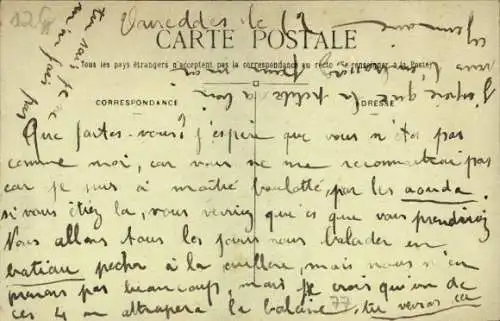 Vareddes le 12
CARTE POSTALE
Tous les pays étrangers n'acceptent pas la correspondance au recto se renseigner à la Poste
CORRESPONDANCE
ADRESSE
Que faites-vous? j'espère que vous n'êtes pas
comme moi, car vous ne me reconnaitriez pas
car je suis à moitié boulotté, par les
si vous étiez la, vous verriez qu'est que vous prendriez
Nous allons tous les jours nous balader en
bateau pecher à la cuillère, mais nous n'en
prenons pas beaucoup, mais je crois qu'un de
ces 4 on attrapera la baleine, tu verras ça
77
tu sais je ne